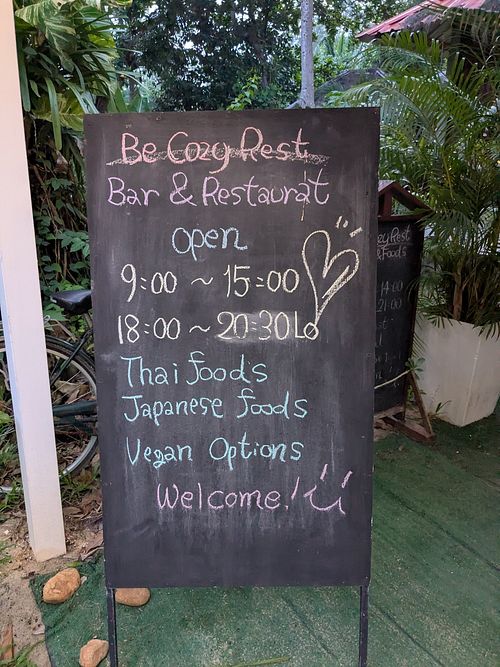 Be Cozy Rest
Bar & Restaurat
open
9:00 ~ 15:00
18:00 ~ 20:30 Lo
Thai foods
Japanese foods
Vegan Options
Welcome!
Rest
Foods
14:00
21:00